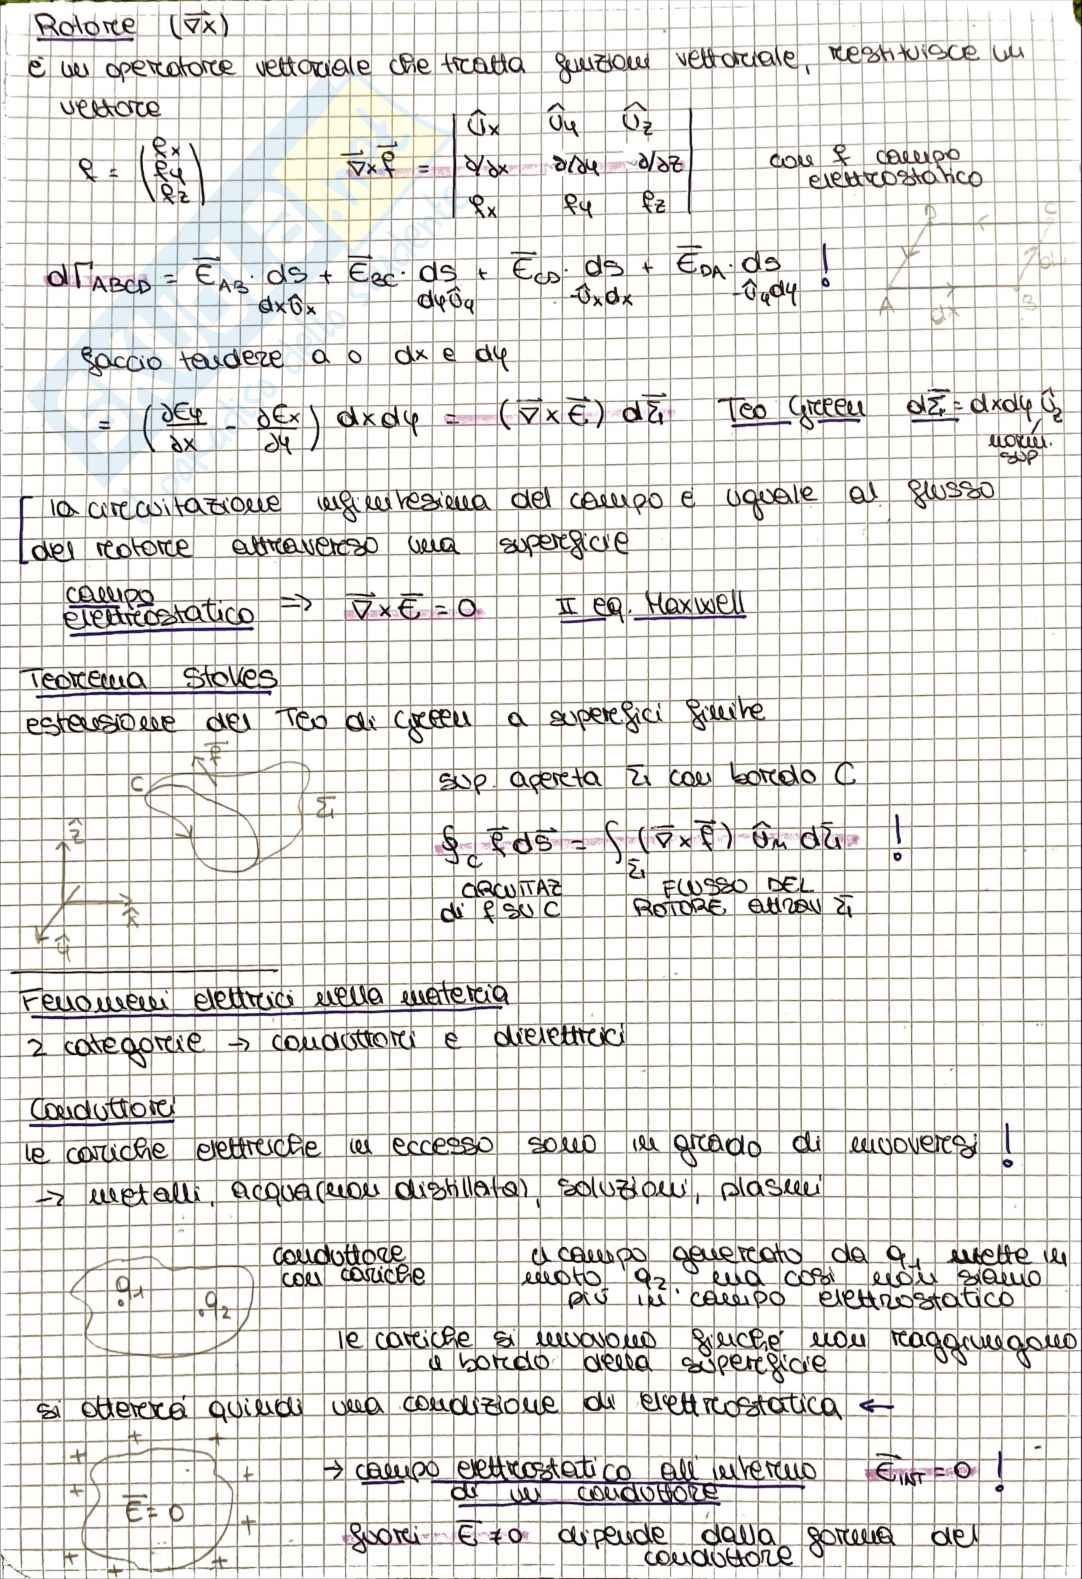 Rotore (∇⃗x)
è un operatore vettoriale che tratta funzioni vettoriale, restituisce un
vettore
f = (fx fy fz)
∇⃗x f⃗ = | ûx ûy ûz |
| ∂/∂x ∂/∂y ∂/∂z |
| fx fy fz |
con f campo
elettrostatico
dΓABCD = E⃗AB · ds + E⃗BC · ds + E⃗CD · ds + E⃗DA · ds !
dxûx dyûy -ûxdx -ûydy
A B C D dx dy
faccio tendere a 0 dx e dy
= (∂Ey/∂x - ∂Ex/∂y) dxdy = (∇⃗ x E⃗) dΣ⃗ Teo Green dΣ⃗ = dxdy ûz
norm.
sup
[la circuitazione infinitesima del campo è uguale al flusso
del rotore attraverso una superficie
campo
elettrostatico => ∇⃗ x E⃗ = 0 II eq. Maxwell
Teorema Stokes
estensione del Teo di Green a superfici finite
C f⃗ Σ
ẑ x̂ ŷ
sup. aperta Σ con bordo C
∮C f⃗ ds⃗ = ∫Σ (∇⃗ x f⃗) ûn dΣ !
CIRCUITAZ FLUSSO DEL
di f SU C ROTORE attrav Σ
Fenomeni elettrici nella materia
2 categorie → conduttori e dielettrici
Conduttori
le cariche elettriche in eccesso sono in grado di muoversi !
→ metalli, acqua (non distillata), soluzioni, plasmi
q1 q2
conduttore
con cariche
il campo generato da q1 mette in
moto q2 ma così non siamo
più in campo elettrostatico
le cariche si muovono finché non raggiungono
il bordo della superficie
si otterrà quindi una condizione di elettrostatica ←
+ + + + + + + + + +
E⃗ = 0
→ campo elettrostatico all'interno E⃗INT = 0 !
di un conduttore
fuori E⃗ ≠ 0 dipende dalla forma del
conduttore